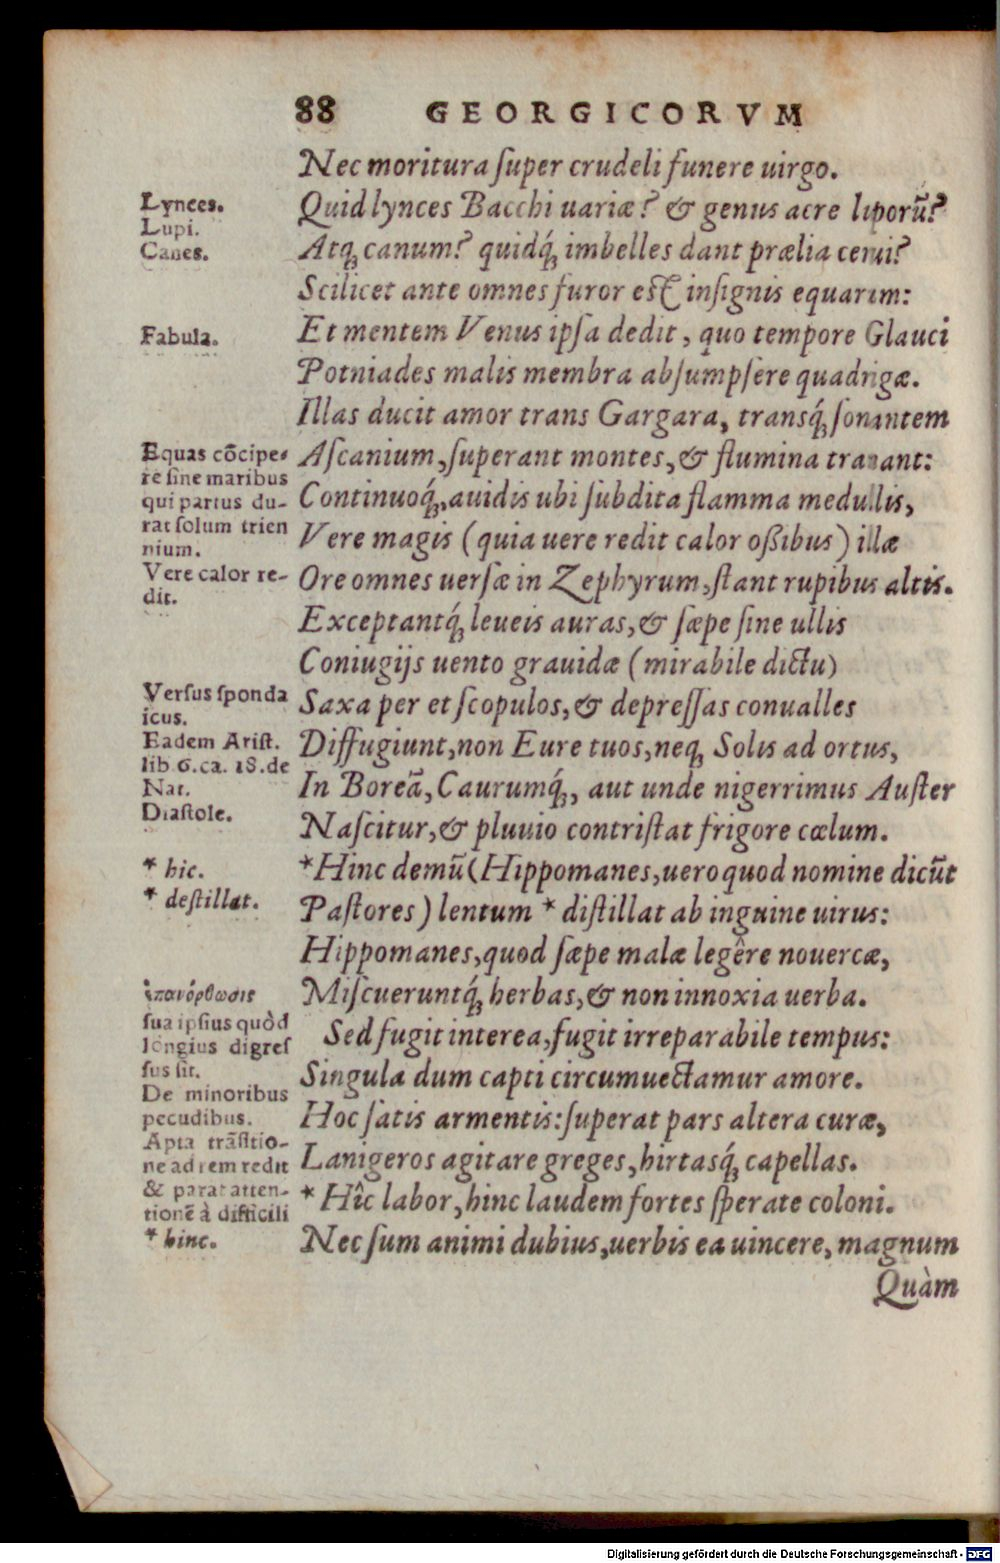 88 GEORGICORVM
Nec moritura ſuper crudeli funere uirgo.
Lynces.
Quid lynces Bacchi uariæ? & genus acre luporũ?
Lupi.
Canes.
Atq́; canum? quidq́; imbelles dant prælia cerui?
Scilicet ante omnes furor eſt inſignis equarum:
Fabula.
Et mentem Venus ipſa dedit, quo tempore Glauci
Potniades malis membra abſumpſere quadrigæ.
Illas ducit amor trans Gargara, transq́; ſonantem
Equas cõcipe-
re ſine maribus
qui partus du-
rat ſolum trien
nium.
Aſcanium, ſuperant montes, & flumina tranant:
Continuoq́;, auidis ubi ſubdita flamma medullis,
Vere magis (quia uere redit calor oßibus) illæ
Vere calor re-
dit.
Ore omnes uerſæ in Zephyrum, ſtant rupibus altis.
Exceptantq́; leueis auras, & ſæpe ſine ullis
Coniugijs uento grauidæ (mirabile dictu)
Verſus ſponda
icus.
Saxa per et ſcopulos, & depreſſas conualles
Eadem Ariſt.
lib 6. ca. 18. de
Nat.
Diffugiunt, non Eure tuos, neq; Solis ad ortus,
In Boreã, Caurumq́;, aut unde nigerrimus Auſter
Diaſtole.
Naſcitur, & pluuio contriſtat frigore cœlum.
* hic.
*Hinc demũ (Hippomanes, uero quod nomine dicũt
* deſtillat.
Paſtores) lentum * diſtillat ab inguine uirus:
Hippomanes, quod ſæpe malæ legêre nouercæ,
ἐπανόρθωσις
ſua ipſius quòd
longius digreſ
ſus ſit.
Miſcueruntq́; herbas, & non innoxia uerba.
Sed fugit interea, fugit irreparabile tempus:
Singula dum capti circumuectamur amore.
De minoribus
pecudibus.
Hoc ſatis armentis: ſuperat pars altera curæ,
Apta trãſitio-
ne ad rem redit
& parat atten-
tionẽ à difficili
Lanigeros agitare greges, hirtasq́; capellas.
* Hîc labor, hinc laudem fortes ſperate coloni.
* hinc.
Nec ſum animi dubius, uerbis ea uincere, magnum
Quàm
Digitalisierung gefördert durch die Deutsche Forschungsgemeinschaft - DFG